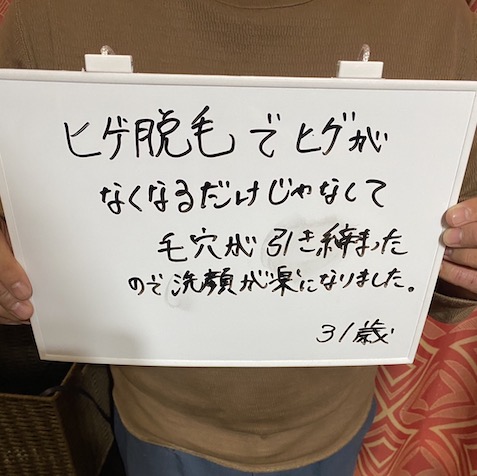 ヒゲ脱毛でヒゲが
なくなるだけじゃなくて
毛穴が引き締まった
ので洗顔が楽になりました。
31歳